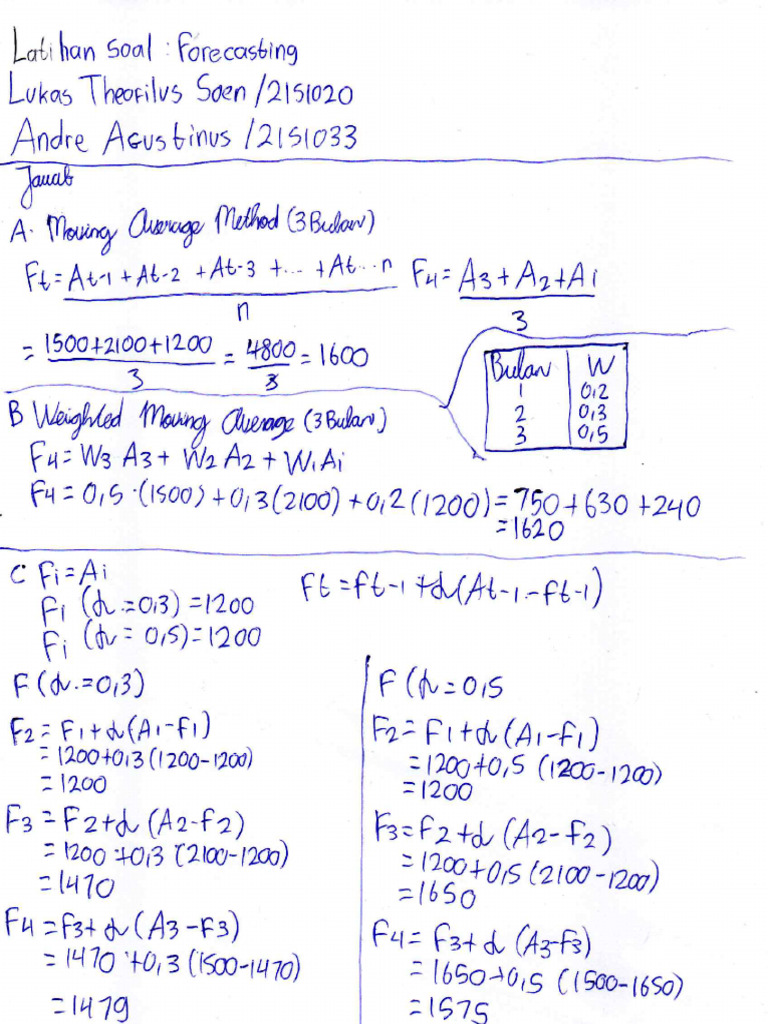 Latihan Soal : Forecasting
Lukas Theofilus Soen /2151020
Andre Agustinus /2151033
Jawab
A. Moving Average Method (3 Bulan)
Ft = At-1 + At-2 + At-3 + ... + At...n / n    F4 = A3 + A2 + Ai / 3
= 1500+2100+1200 / 3 = 4800 / 3 = 1600
Bulan W
1 0,2
2 0,3
3 0,5
B Weighted Moving Average (3 Bulan)
F4 = W3 A3 + W2 A2 + Wi Ai
F4 = 0,5 · (1500) + 0,3 (2100) + 0,2 (1200) = 750 + 630 + 240
= 1620
C Fi = Ai    Ft = ft-1 + α(At-1 - ft-1)
Fi (α = 0,3) = 1200
Fi (α = 0,5) = 1200
F (α = 0,3)
F2 = F1 + α (A1 - f1)
= 1200+0,3 (1200-1200)
= 1200
F3 = F2 + α (A2 - f2)
= 1200 + 0,3 (2100-1200)
= 1470
F4 = f3 + α (A3 - F3)
= 1470 + 0,3 (1500-1470)
= 1479
F (α = 0,5
F2 = F1 + α (A1 - f1)
= 1200+0,5 (1200-1200)
= 1200
F3 = f2 + α (A2 - f2)
= 1200+0,5 (2100-1200)
= 1650
F4 = F3 + α (A3-f3)
= 1650+0,5 (1500-1650)
= 1575